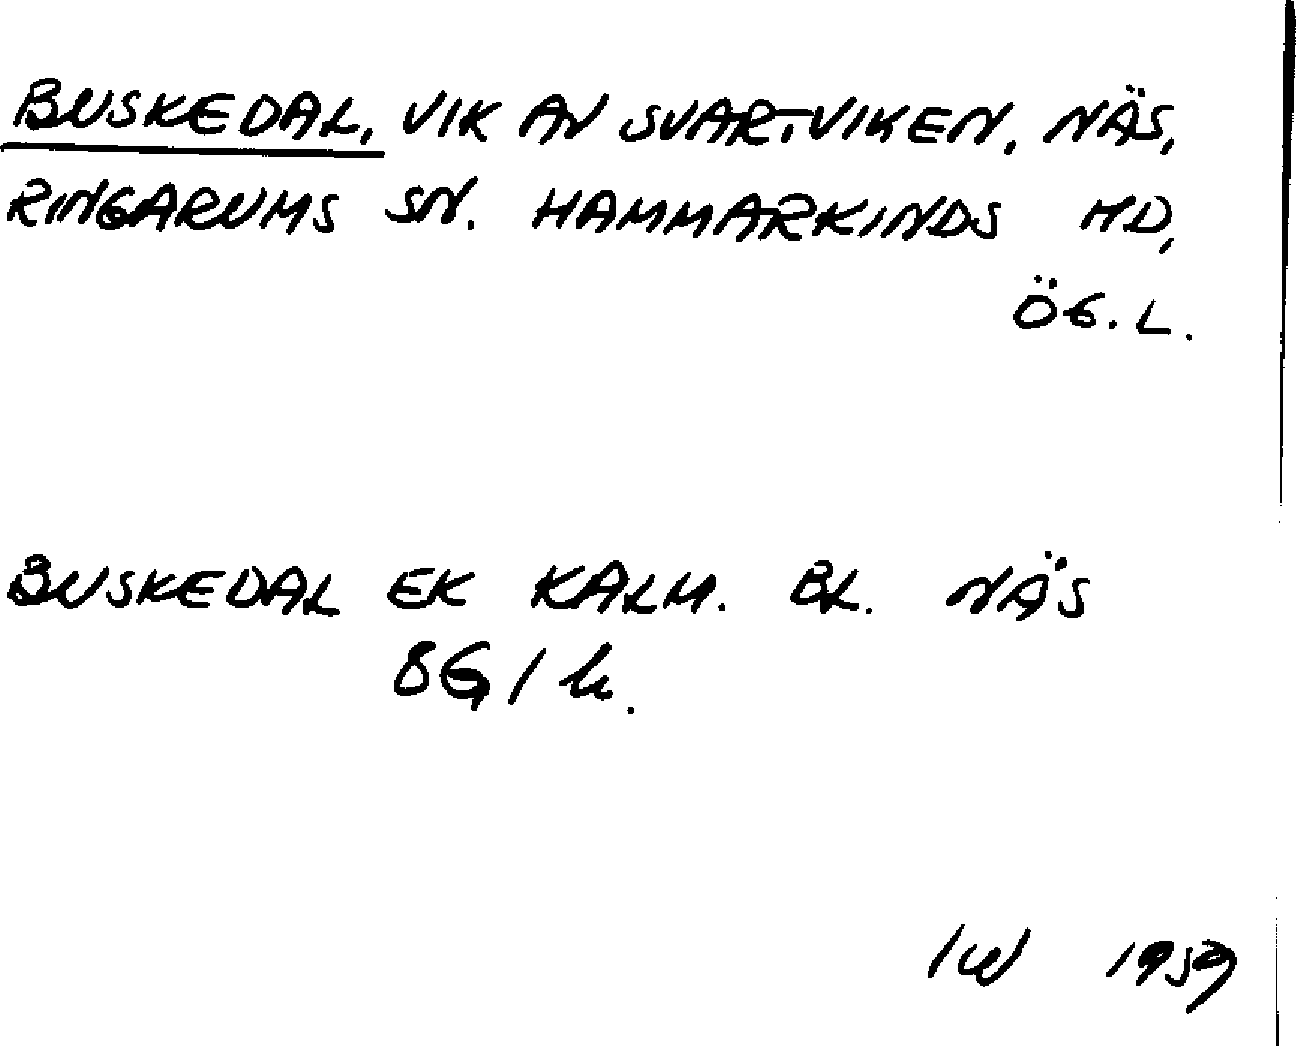 BUSKEDAL, VIK AV SVARTVIKEN, NÄS,
RINGARUMS SN. HAMMARKINDS HD,
ÖG. L.
BUSKEDAL EK KALM. BL. NÄS
8G1k.
IW 1959